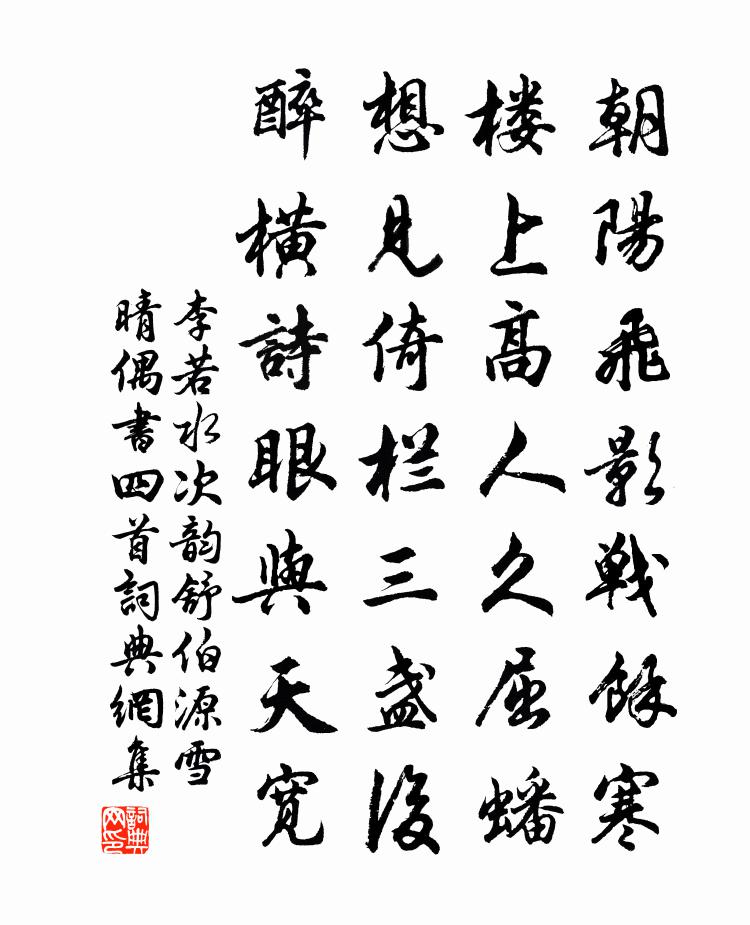 朝陽飛影戦餘寒
楼上高人久屈蟠
想見倚栏三盏後
醉橫詩眼與天寛
李若水次韵舒伯源雪
晴偶書四首詞典網集
詞典
网印